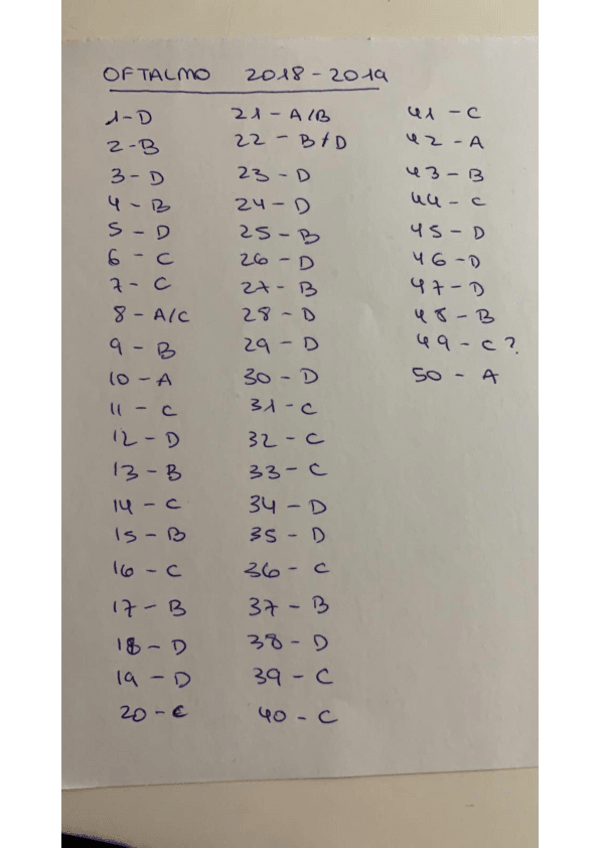 OFTALMO 2018-2019
1-D
2-B
3-D
4-B
5-D
6-C
7-C
8-A/C
9-B
10-A
11-C
12-D
13-B
14-C
15-B
16-C
17-B
18-D
19-D
20-C
21-A/B
22-B/D
23-D
24-D
25-B
26-D
27-B
28-D
29-D
30-D
31-C
32-C
33-C
34-D
35-D
36-C
37-B
38-D
39-C
40-C
41-C
42-A
43-B
44-C
45-D
46-D
47-D
48-B
49-C?
50-A